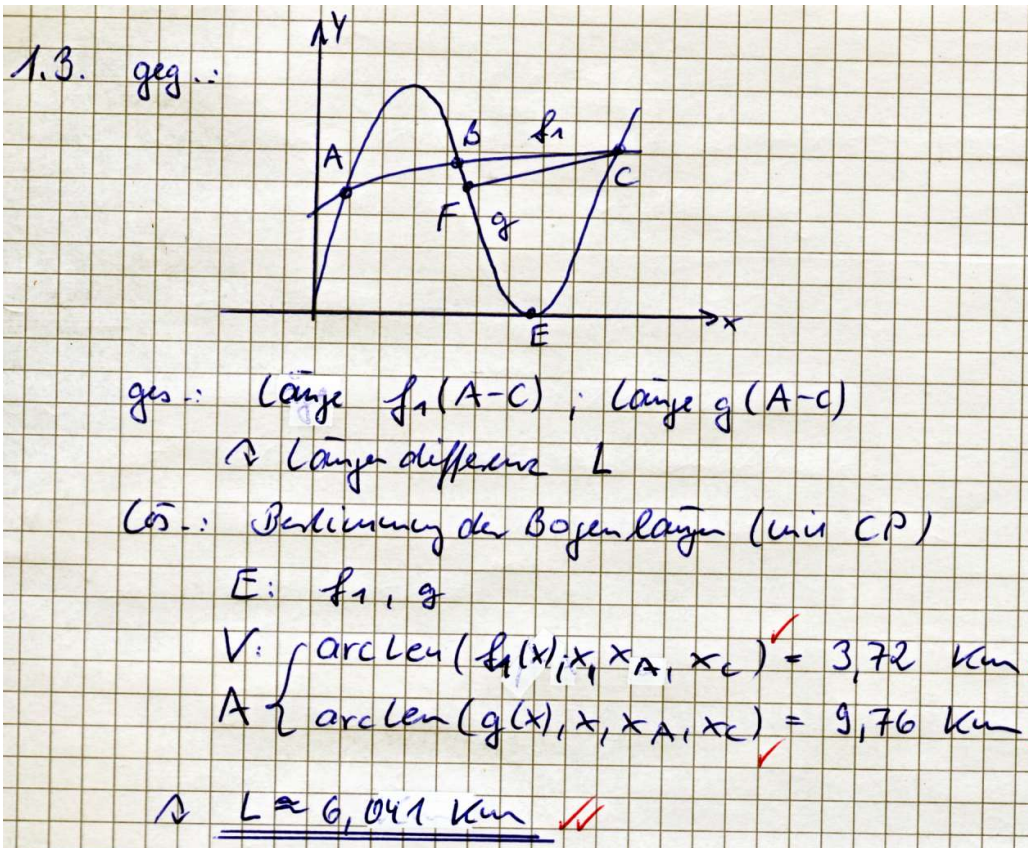 1.3. geg.:
Y
A
B
f1
C
F
g
E
x
ges.: Länge f1(A-C) ; Länge g(A-C)
Längendifferenz L
Lös.: Bestimmung der Bogenlängen (mit CP)
E: f1, g
V: arcLen(f1(x),x, xA, xC) = 3,72 Km
A arcLen(g(x),x,xA,xC) = 9,76 Km
L ≈ 6,041 Km